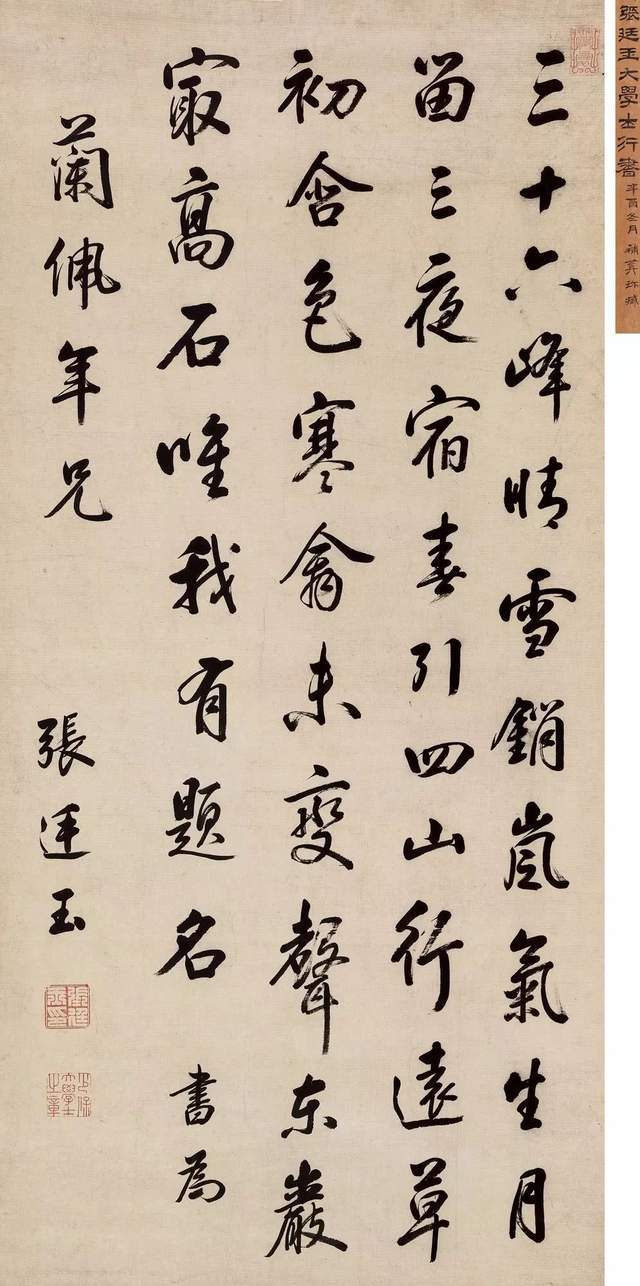 張廷玉大學士行書 辛酉冬月
三十六峰晴雪銷嵐氣生月
留三夜宿春引四山行遠草
初含色寒禽未變聲東巖
㝡髙石唯我有題名 書為
蘭佩年兄 張廷玉